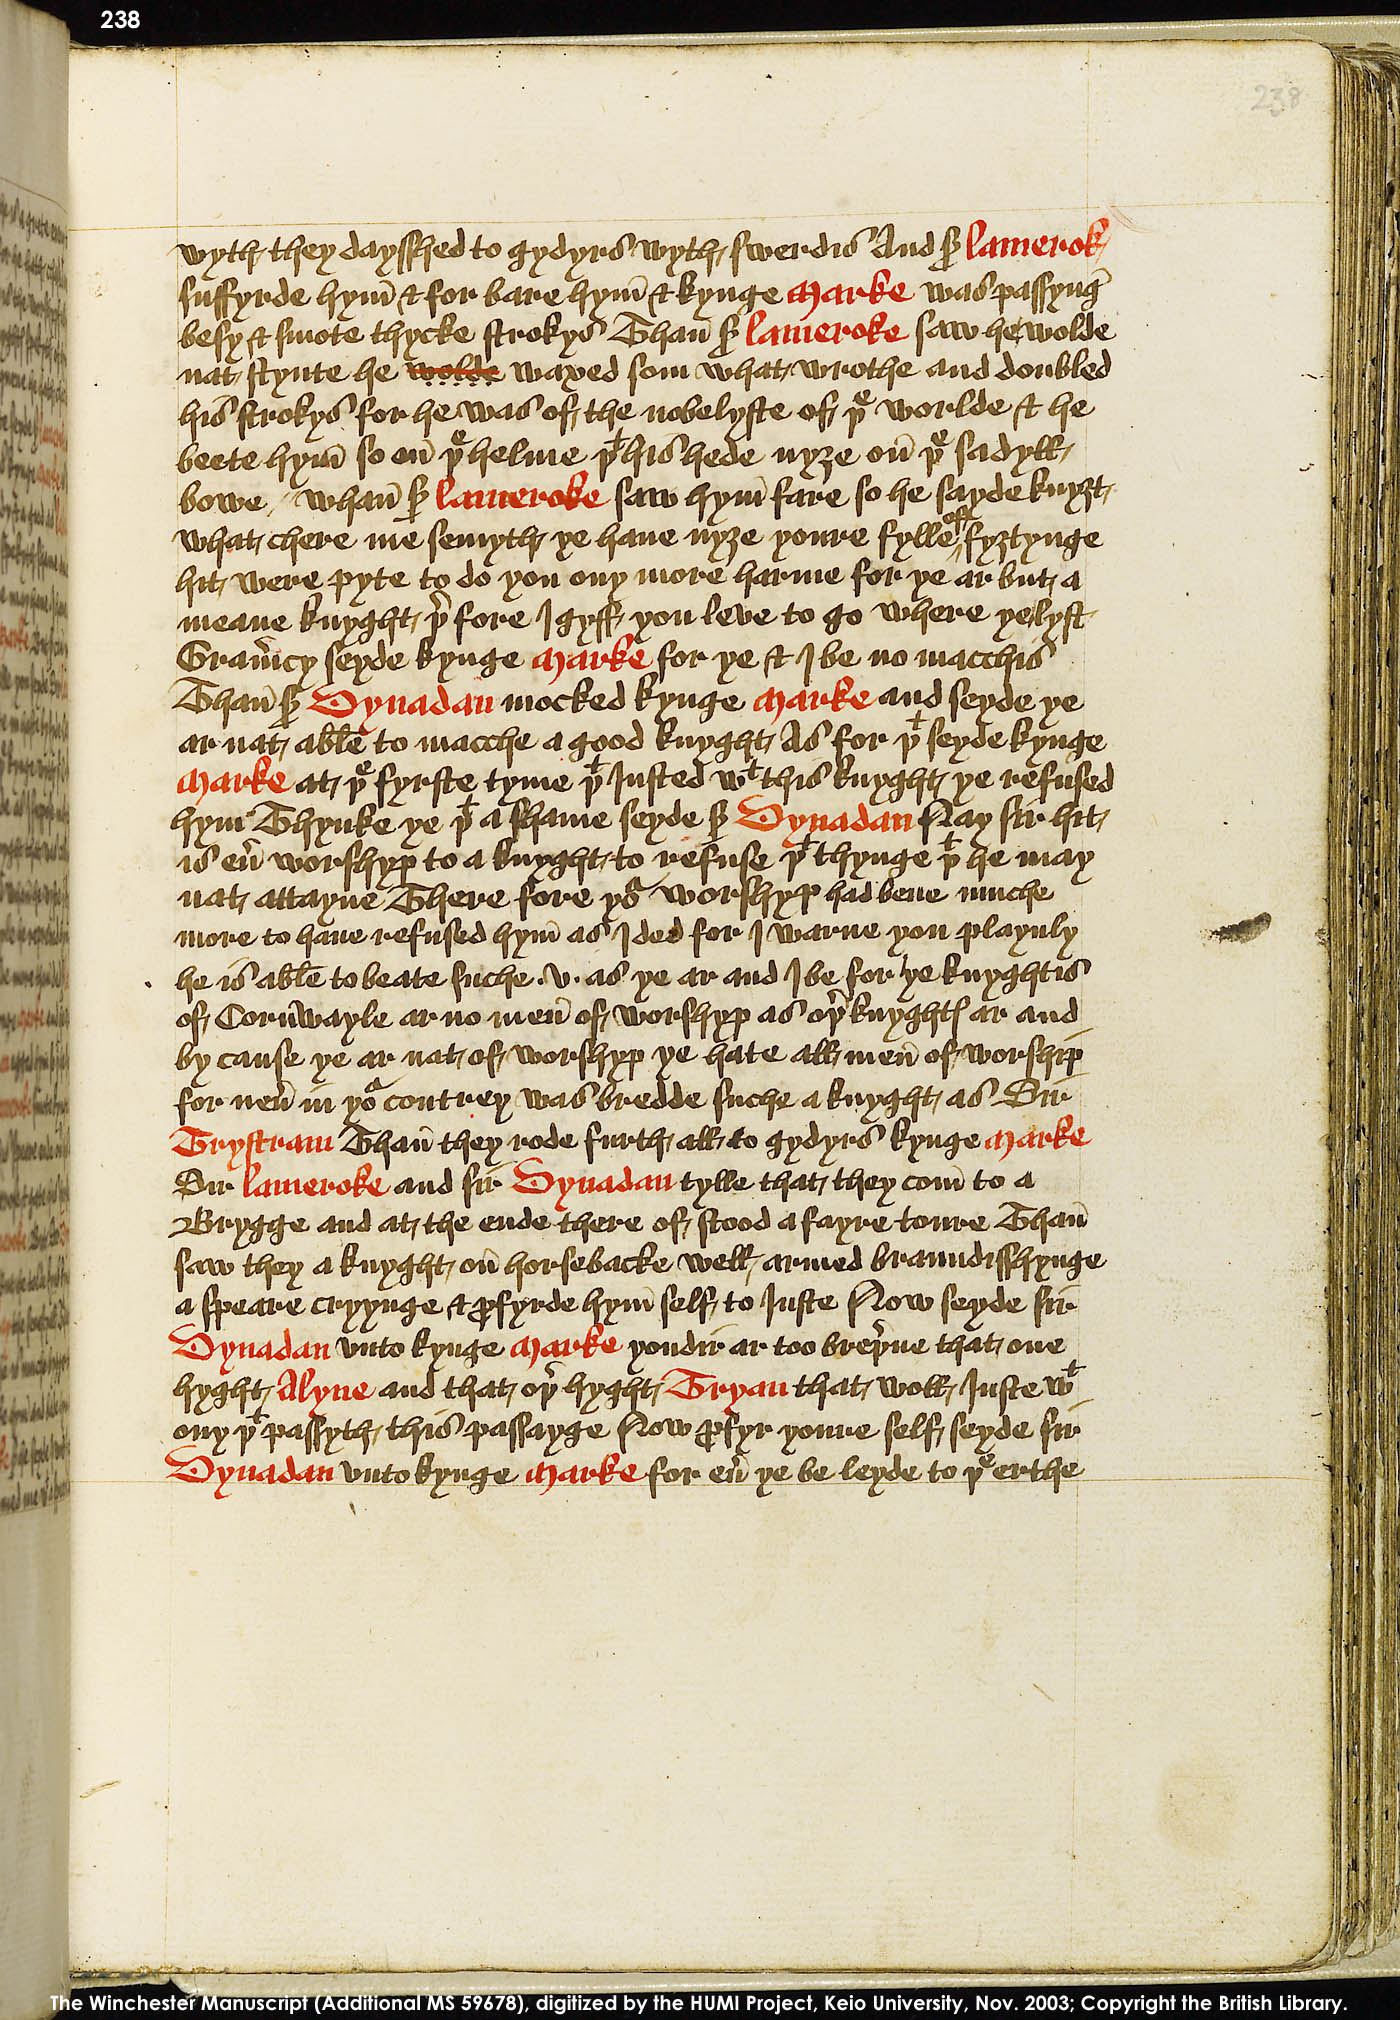 238
238
wyth they daysshed to gydyrs wyth swerdis And sꝛ lamerok
suffyrde hym̄ & for bare hym̄ & kynge Marke was passynḡ
besy & smote thycke strokys Than̄ sꝛ lameroke saw he wolde
nat stynte he wolde waxed som what wrothe and doubled
his strokys for he was of the nobelyste of þᵉ worlde & he
beete hym̄ so on̄ þᵉ helme þᵗ his hede nyȝe on̄ þᵉ sadyll
bowe / whan̄ sꝛ lameroke saw hym̄ fare so he sayde knyȝt
what chere me semyth ye haue nyȝe youre fylle off fyȝtynge
hit were pyte to do you ony more harme for ye ar but a
meane knyght þ̓ fore I gyff you leve to go where ye lyst
Gram̓cy seyde kynge Marke for ye & I be no macchis
Than̄ sꝛ Dynadan mocked kynge Marke and seyde ye
ar nat abłe to macche a good knyght As for þᵗ seyde kynge
Marke at þᵉ fyrste tyme þᵗ I Iusted wᵗ this knyght ye refused
hym Thynke ye þᵗ a shame seyde sꝛ Dynadan Nay sir hit
is eu̓ worshyp to a knyght to refuse þᵗ thynge þᵗ he may
nat attayne There fore yoᵘ worshyp had bene muche
more to haue refused hym̄ as I ded for I warne you playnly
he is abłe to beate suche .v. as ye ar and I be for ye knyghtis
of Corn̄wayle ar no men̄ of worshyp as oþ̓ knyghtꝭ ar and
by cause ye ar nat of worshyp ye hate all men̄ of worship
for neu̓ in yoᵘ contrey was bredde suche a knyght as Sir
Trystram Than̄ they rode furth all to gydyrs kynge Marke
Sir lameroke and sir Dynadan tylle that they com̄ to a
Brygge and at the ende there of stood a fayre toure Than̄
saw they a knyght on̄ horsebacke well armed braundisshynge
a speare cryynge & ꝓfyrde hym̄ self to Iuste Now seyde sir
Dynadan vnto kynge Marke yondir ar too breþ̓ne that one
hyght Alyne and that oþ̓ hyght Tryan that woll Iuste wᵗ
ony þᵗ passyth this passayge Now ꝓfyr youre self seyde sir
Dynadan vnto kynge Marke for eu̓ ye be leyde to þᵉ erthe
The Winchester Manuscript (Additional MS 59678), digitized by the HUMI Project, Keio University, Nov. 2003; Copyright the British Library.